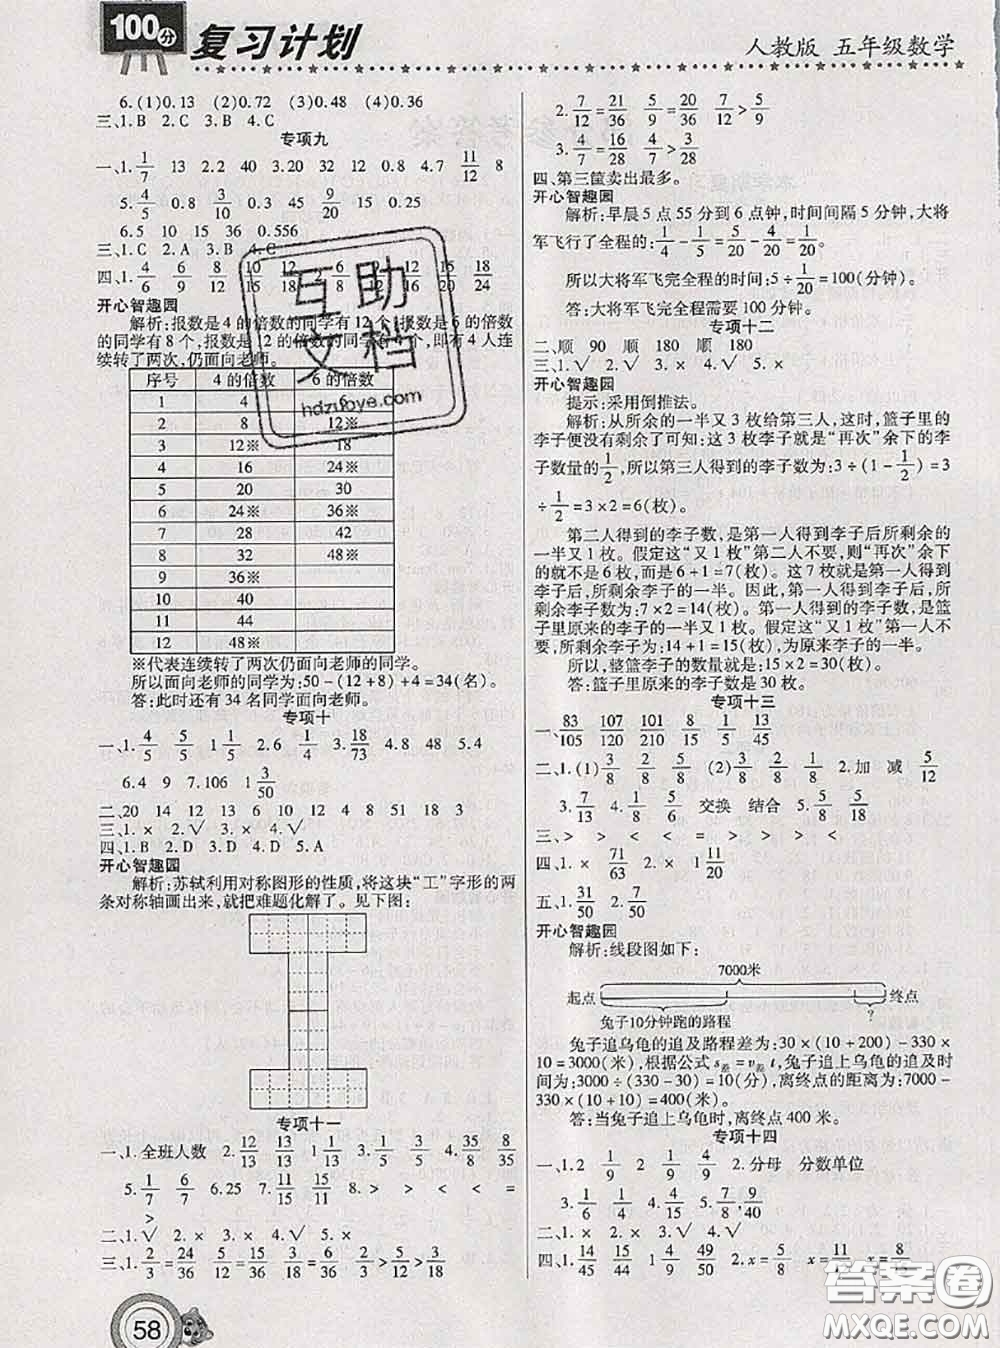 100分 复习计划
人教版 五年级数学
6.(1)0.13 (2)0.72 (3)0.48 (4)0.36
三、1.B 2.C 3.B 4.C
专项九
一、1.1/7 13 2.2 40 3.20 32 12 0.8 4.7 11/12 8
5.4/5 0.8 3/10 0.3 45 9/20 15 0.25
6.5 10 15 36 0.556
三、1.C 2.A 3.B 4.C
四、1.4/6 6/9 8/12 10/15 12/18 2. 12/16 15/20 18/24
开心智趣园
解析:报数是4的倍数的同学有12个,报数是6的倍数
的同学有8个,报数是12的倍数的同学有4个,即有4人连
续转了两次,仍面向老师。
序号 4的倍数 6的倍数
1 4 6
2 8 12※
3 12※ 18
4 16 24※
5 20 30
6 24※ 36※
7 28 42
8 32 48※
9 36※
10 40
11 44
12 48※
※代表连续转了两次仍面向老师的同学。
所以面向老师的同学为:50-(12+8)+4=34(名)。
答:此时还有34名同学面向老师。
专项十
一、1.4/5 5/5 1 1/5 2.6 1/4 3.18/73 4.8 48 5.4
6.4 9 7.106 1 3/50
二、20 14 12 13 6 10 12 4 8 51 18 3
三、1.× 2.√ 3.× 4.√
四、1.B 2.D 3.D 4.D 5.A
开心智趣园
解析:苏轼利用对称图形的性质,将这块“工”字形的两
条对称轴画出来,就把难题化解了。见下图:
专项十一
一、1.全班人数 2.12/13 13/13 1 3.1/5 3/5 4.35/8 8/35
5.1/7 6/7 6.25 7.11/15 15/11 8.> > < < < =
>
二、1.√ 2.× 3.× 4.√ 5.×
三、1.2/3=24/36 5/12=15/36 2/3>5/12
2.7/12=21/36 5/9=20/36 7/12>5/9
3.4/7=16/28 3/4=21/28 4/7<3/4
四、第三筐卖出最多。
开心智趣园
解析:早晨5点55分到6点钟,时间间隔5分钟,大将
军飞行了全程的:1/4-1/5=5/20-4/20=1/20。
所以大将军飞完全程的时间:5÷1/20=100(分钟)。
答:大将军飞完全程需要100分钟。
专项十二
二、顺 90 顺 180 顺 180
三、1.√ 2.√ 3.× 4.× 5.√
开心智趣园
提示:采用倒推法。
解析:从所余的一半又3枚给第三人,这时,篮子里的
李子便没有剩余了可知:这3枚李子就是“再次”余下的李
子数量的1/2,所以第三人得到的李子数为:3÷(1-1/2)=3
÷1/2=3×2=6(枚)。
第二人得到的李子数,是第一人得到李子后所剩余的
一半又1枚。假定这“又1枚”第二人不要,则“再次”余下
的就不是6枚,而是6+1=7(枚)。这7枚就是第一人得
李子后,所剩余李子的一半。因此,第一人得到李子后,所
剩余李子数为:7×2=14(枚)。第一人得到的李子数,是篮
子里原来的李子的一半又1枚。假定这“又1枚”第一人不
要,则所剩余李子数为:14+1=15(枚),为原来李子的一半。
所以,整篮李子的数量就是:15×2=30(枚)。
答:篮子里原来的李子数是30枚。
专项十三
一、83/105 107/120 101/210 8/15 1/5 13/45
二、1.(1)3/8 2/8 5/8 (2)3/8 2/8 1/8 2.加 减 5/12
3.7/13 4.1/8 5/6 交换 结合 5.5/8 5/18
三、> > < < = > > > <
四、1.× 71/63 2.× 1 11/20
五、1.31/50 2.7/50
开心智趣园
解析:线段图如下:
7000米
起点 终点
兔子10分钟跑的路程 ?
兔子追乌龟的追及路程差为:30×(10+200)-330×
10=3000(米),根据公式s差=v差t,兔子追上乌龟的追及时
间为:3000÷(330-30)=10(分),离终点的距离为:7000-
330×(10+10)=400(米)。
答:当兔子追上乌龟时,离终点400米。
专项十四
一、1.2 1/9 4/9 2.分母 分数单位
3.1/6 1/4 4.4/9 5.7/9,9/7
二、1.× 2.× 3.√ 4.√
四、1.14/15 45/15 1 4/9 49/50 2.x=5/8 x=11/ x=8/
58
互助文档
hdzuoye.com
答案圈
MXQE.COM